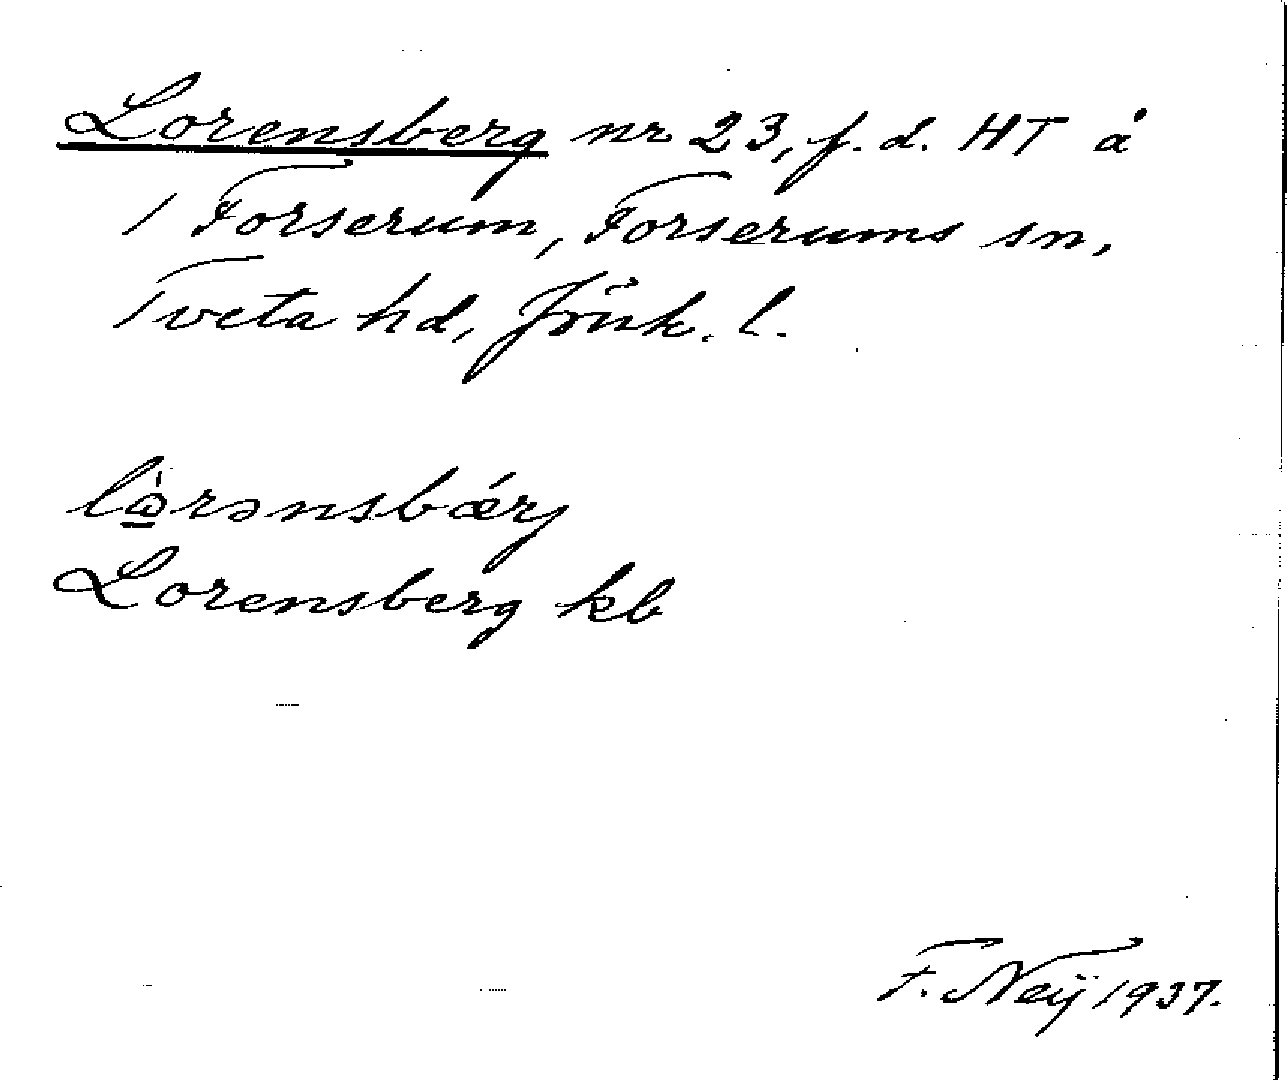 Lorensberg nr 23, f.d. HT å
1 Forserum, Forserums sn,
Tveta hd, Jönk. l.
Lorensberg kb
F. Neij 1937.